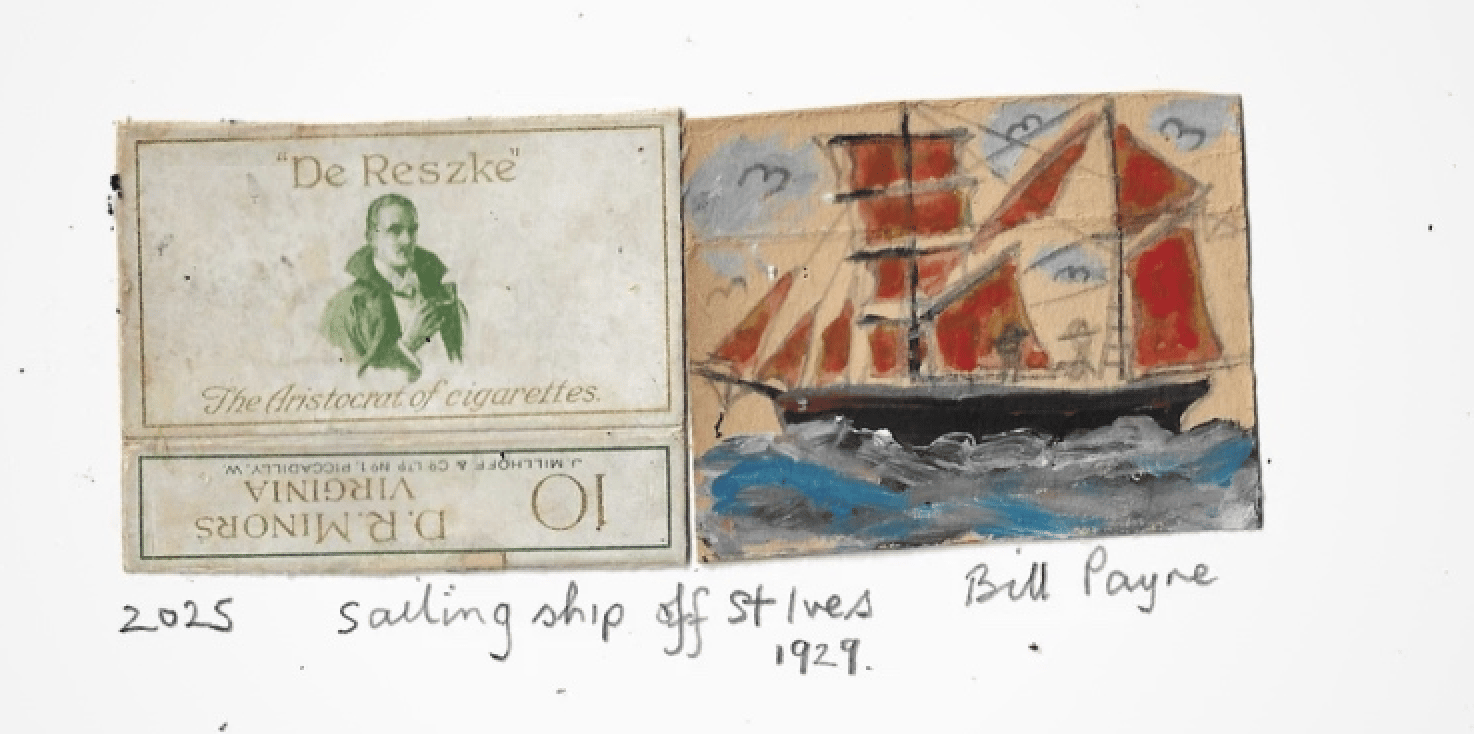 "De Reszke"
The Aristocrat of cigarettes.
J. MILLHOFF & Cº LTD Nº1, PICCADILLY. W.
10 D.R. MINORS
VIRGINIA
2025 Sailing ship off St Ives Bill Payne
1929.